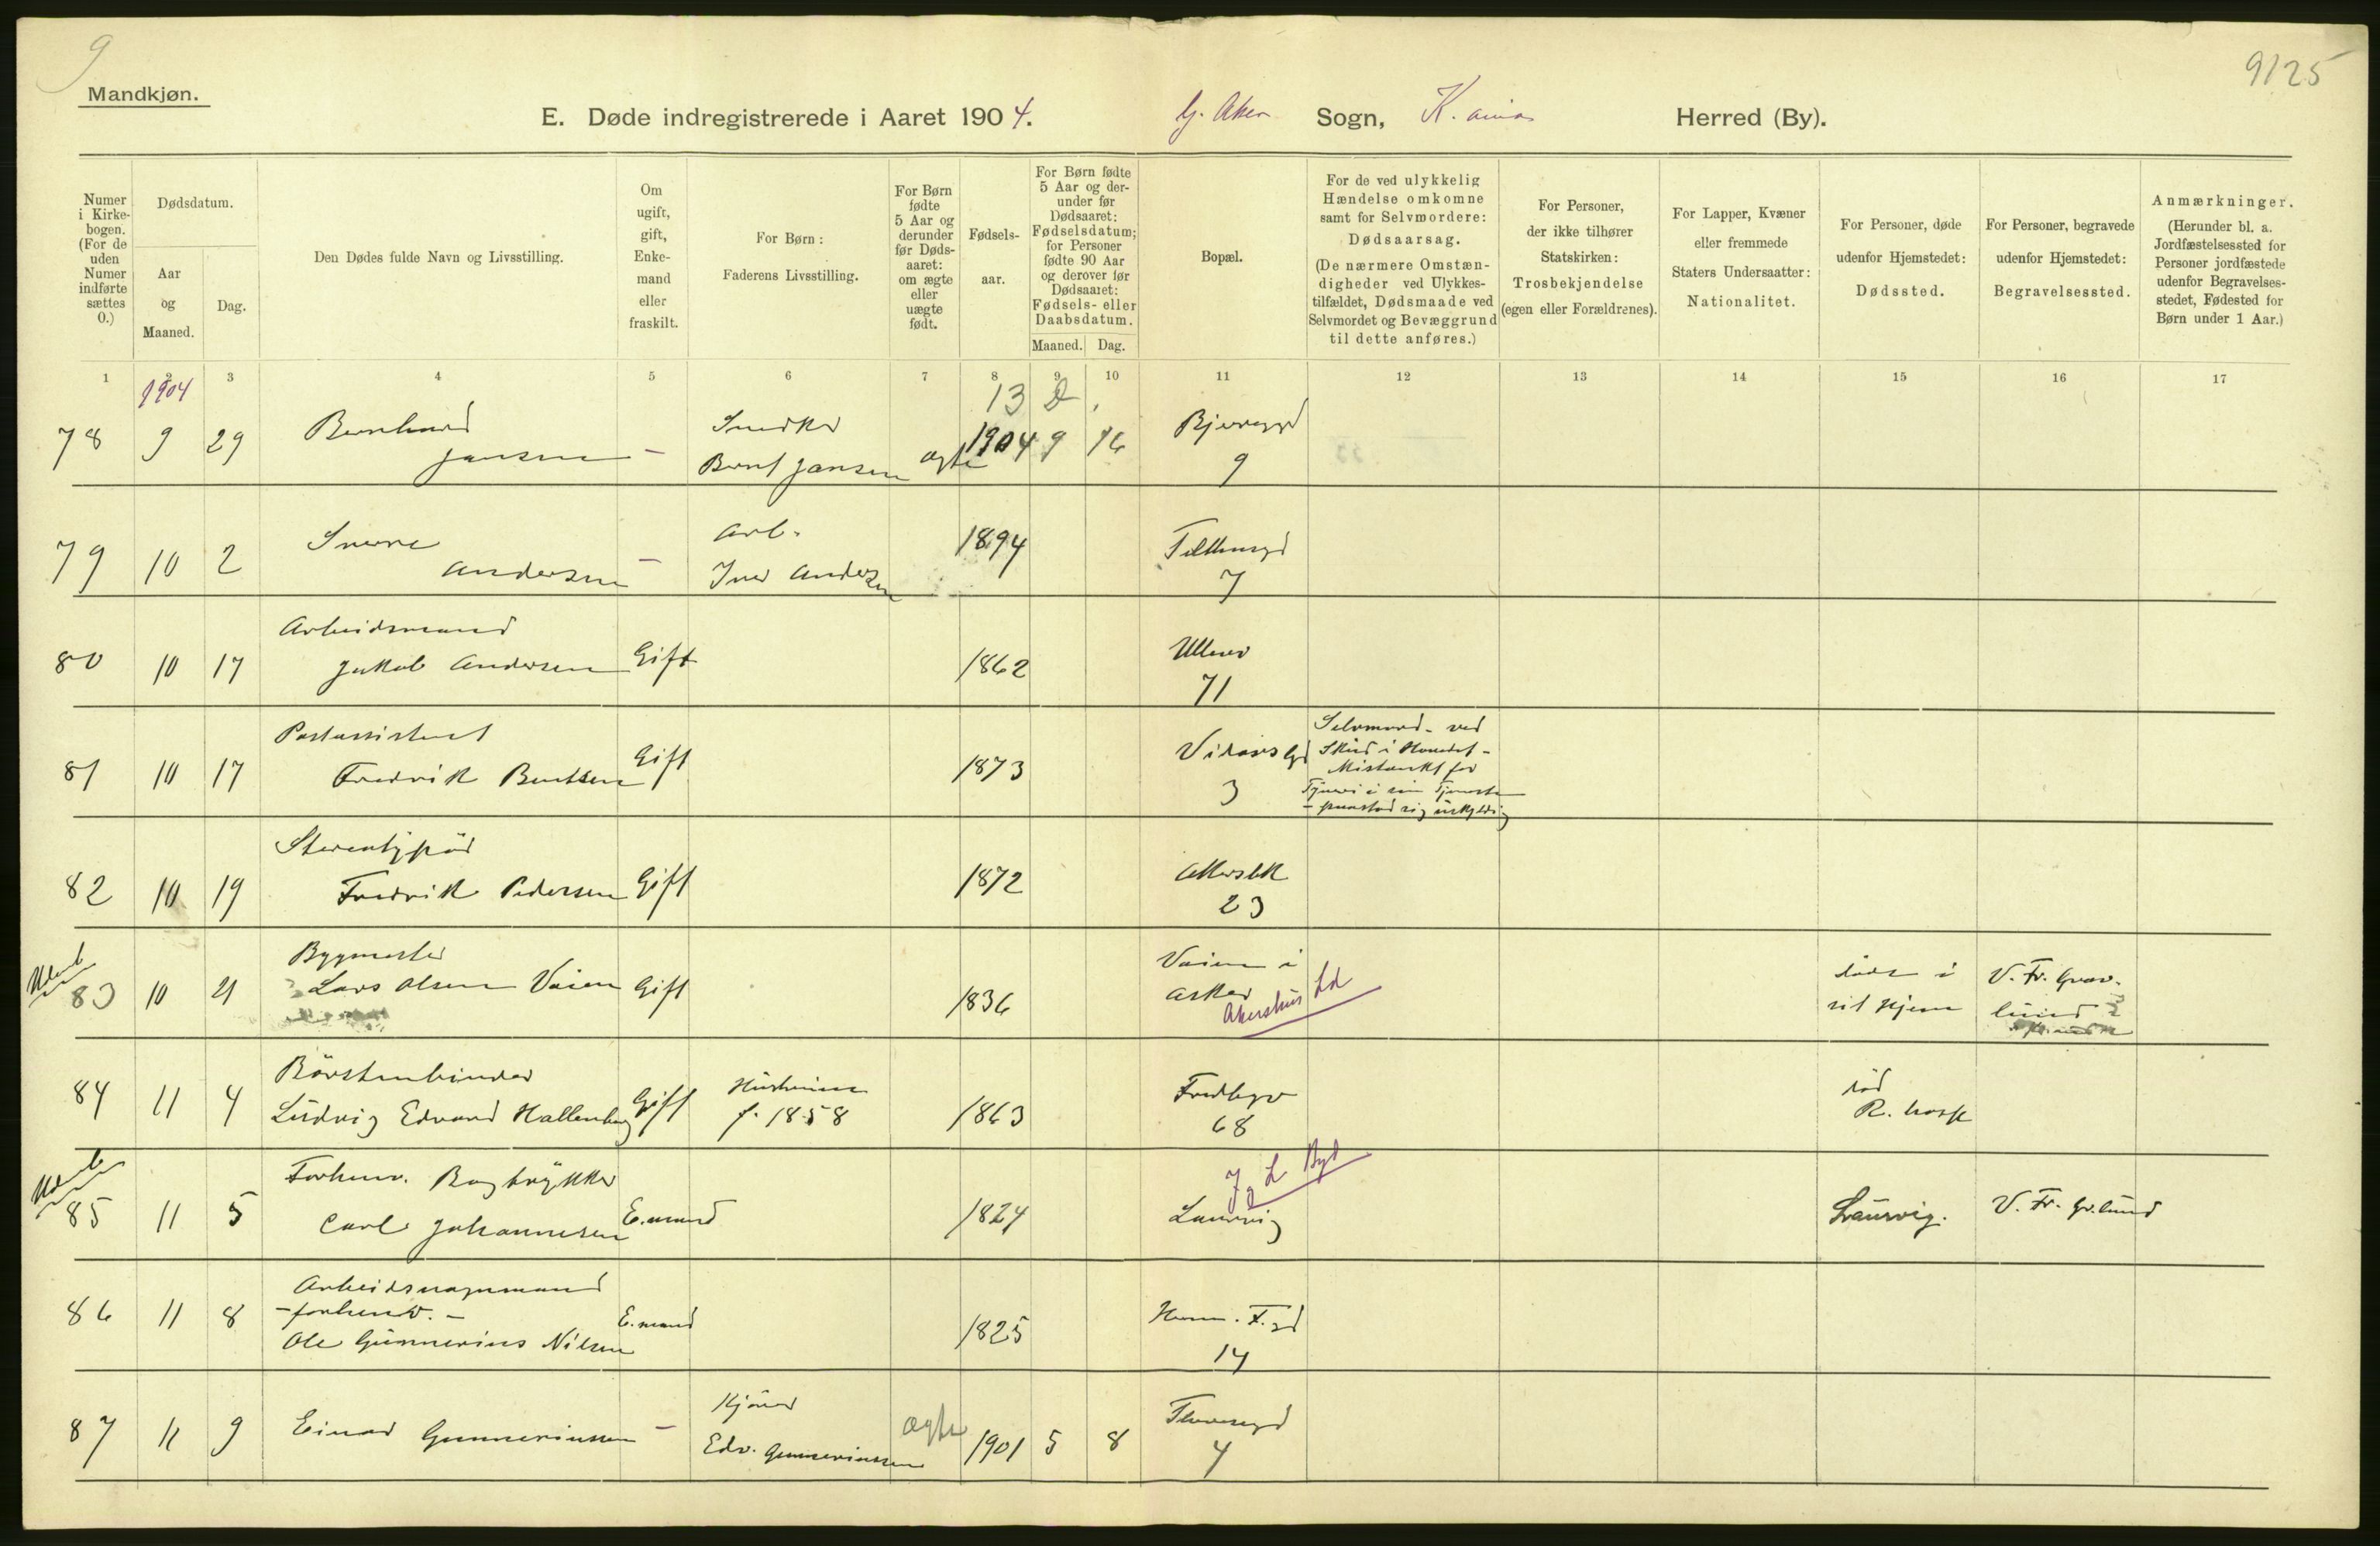 9
9125
Mandkjøn.
E. Døde indregistrerede i Aaret 1904. G. Aker Sogn, K.ania Herred (By).
Numer i Kirkebogen. (For de uden Numer indførte sættes 0.)
Dødsdatum.
Aar og Maaned.
Dag.
Den Dødes fulde Navn og Livsstilling.
Om ugift, gift, Enkemand eller fraskilt.
For Børn:
Faderens Livsstilling.
For Børn fødte 5 Aar og derunder før Dødsaaret: om ægte eller uægte født.
Fødselsaar.
For Børn fødte 5 Aar og derunder før Dødsaaret: Fødselsdatum; for Personer fødte 90 Aar og derover før Dødsaaret: Fødsels- eller Daabsdatum.
Maaned. Dag.
Bopæl.
For de ved ulykkelig Hændelse omkomne samt for Selvmordere: Dødsaarsag.
(De nærmere Omstændigheder ved Ulykkestilfældet, Dødsmaade ved Selvmordet og Bevæggrund til dette anføres.)
For Personer, der ikke tilhører Statskirken: Trosbekjendelse (egen eller Forældrenes).
For Lapper, Kvæner eller fremmede Staters Undersaatter: Nationalitet.
For Personer, døde udenfor Hjemstedet: Dødssted.
For Personer, begravede udenfor Hjemstedet: Begravelsessted.
Anmærkninger.
(Herunder bl. a. Jordfæstelsessted for Personer jordfæstede udenfor Begravelsesstedet, Fødested for Børn under 1 Aar.)
1 2 3 4 5 6 7 8 9 10 11 12 13 14 15 16 17
1904
13 D.
78 9 29 Bernhard Jansen - Snedker Bernt Jansen ægte 1904 9 16 Bjerregd 9
79 10 2 Sverre Andersen - Arb. Iver Andersen 1894 Telthusgd 7
80 10 17 Arbeidsmand Jakob Andersen Gift 1862 Ullevv 71
81 10 17 Postassistent Fredrik Berntsen Gift 1873 Vidars gd 3 Selvmord - ved Skud i Hovedet - Mistænkt for Tyveri i sin Tjeneste - paastod sig uskyldig
82 10 19 Stereotypør Fredrik Pedersen Gift 1872 Akersbk 23
83 10 21 Bygmester Lars Olsen Vaien Gift 1836 Vaien i Asker Akershus døde i sit Hjem V. Fr. Gravlund
84 11 4 Börstenbinder Ludvig Edvard Hallenberg Gift Hustruen f. 1858 1863 Fredbgv 68 död R. hosp
85 11 5 Forhenv. Bogtrykker Carl Johannesen E.mand 1824 Laurvig J L Byd Laurvig. V. Fr. Gr.lund
86 11 8 Arbeidsvognmand - forhenv. - Ole Gunnerius Nilsen E.mand 1825 Herm. F. gd 14
87 11 9 Einar Gunneriussen - Kjörer Edv. Gunneriussen ægte 1901 5 8 Thoresgd 4